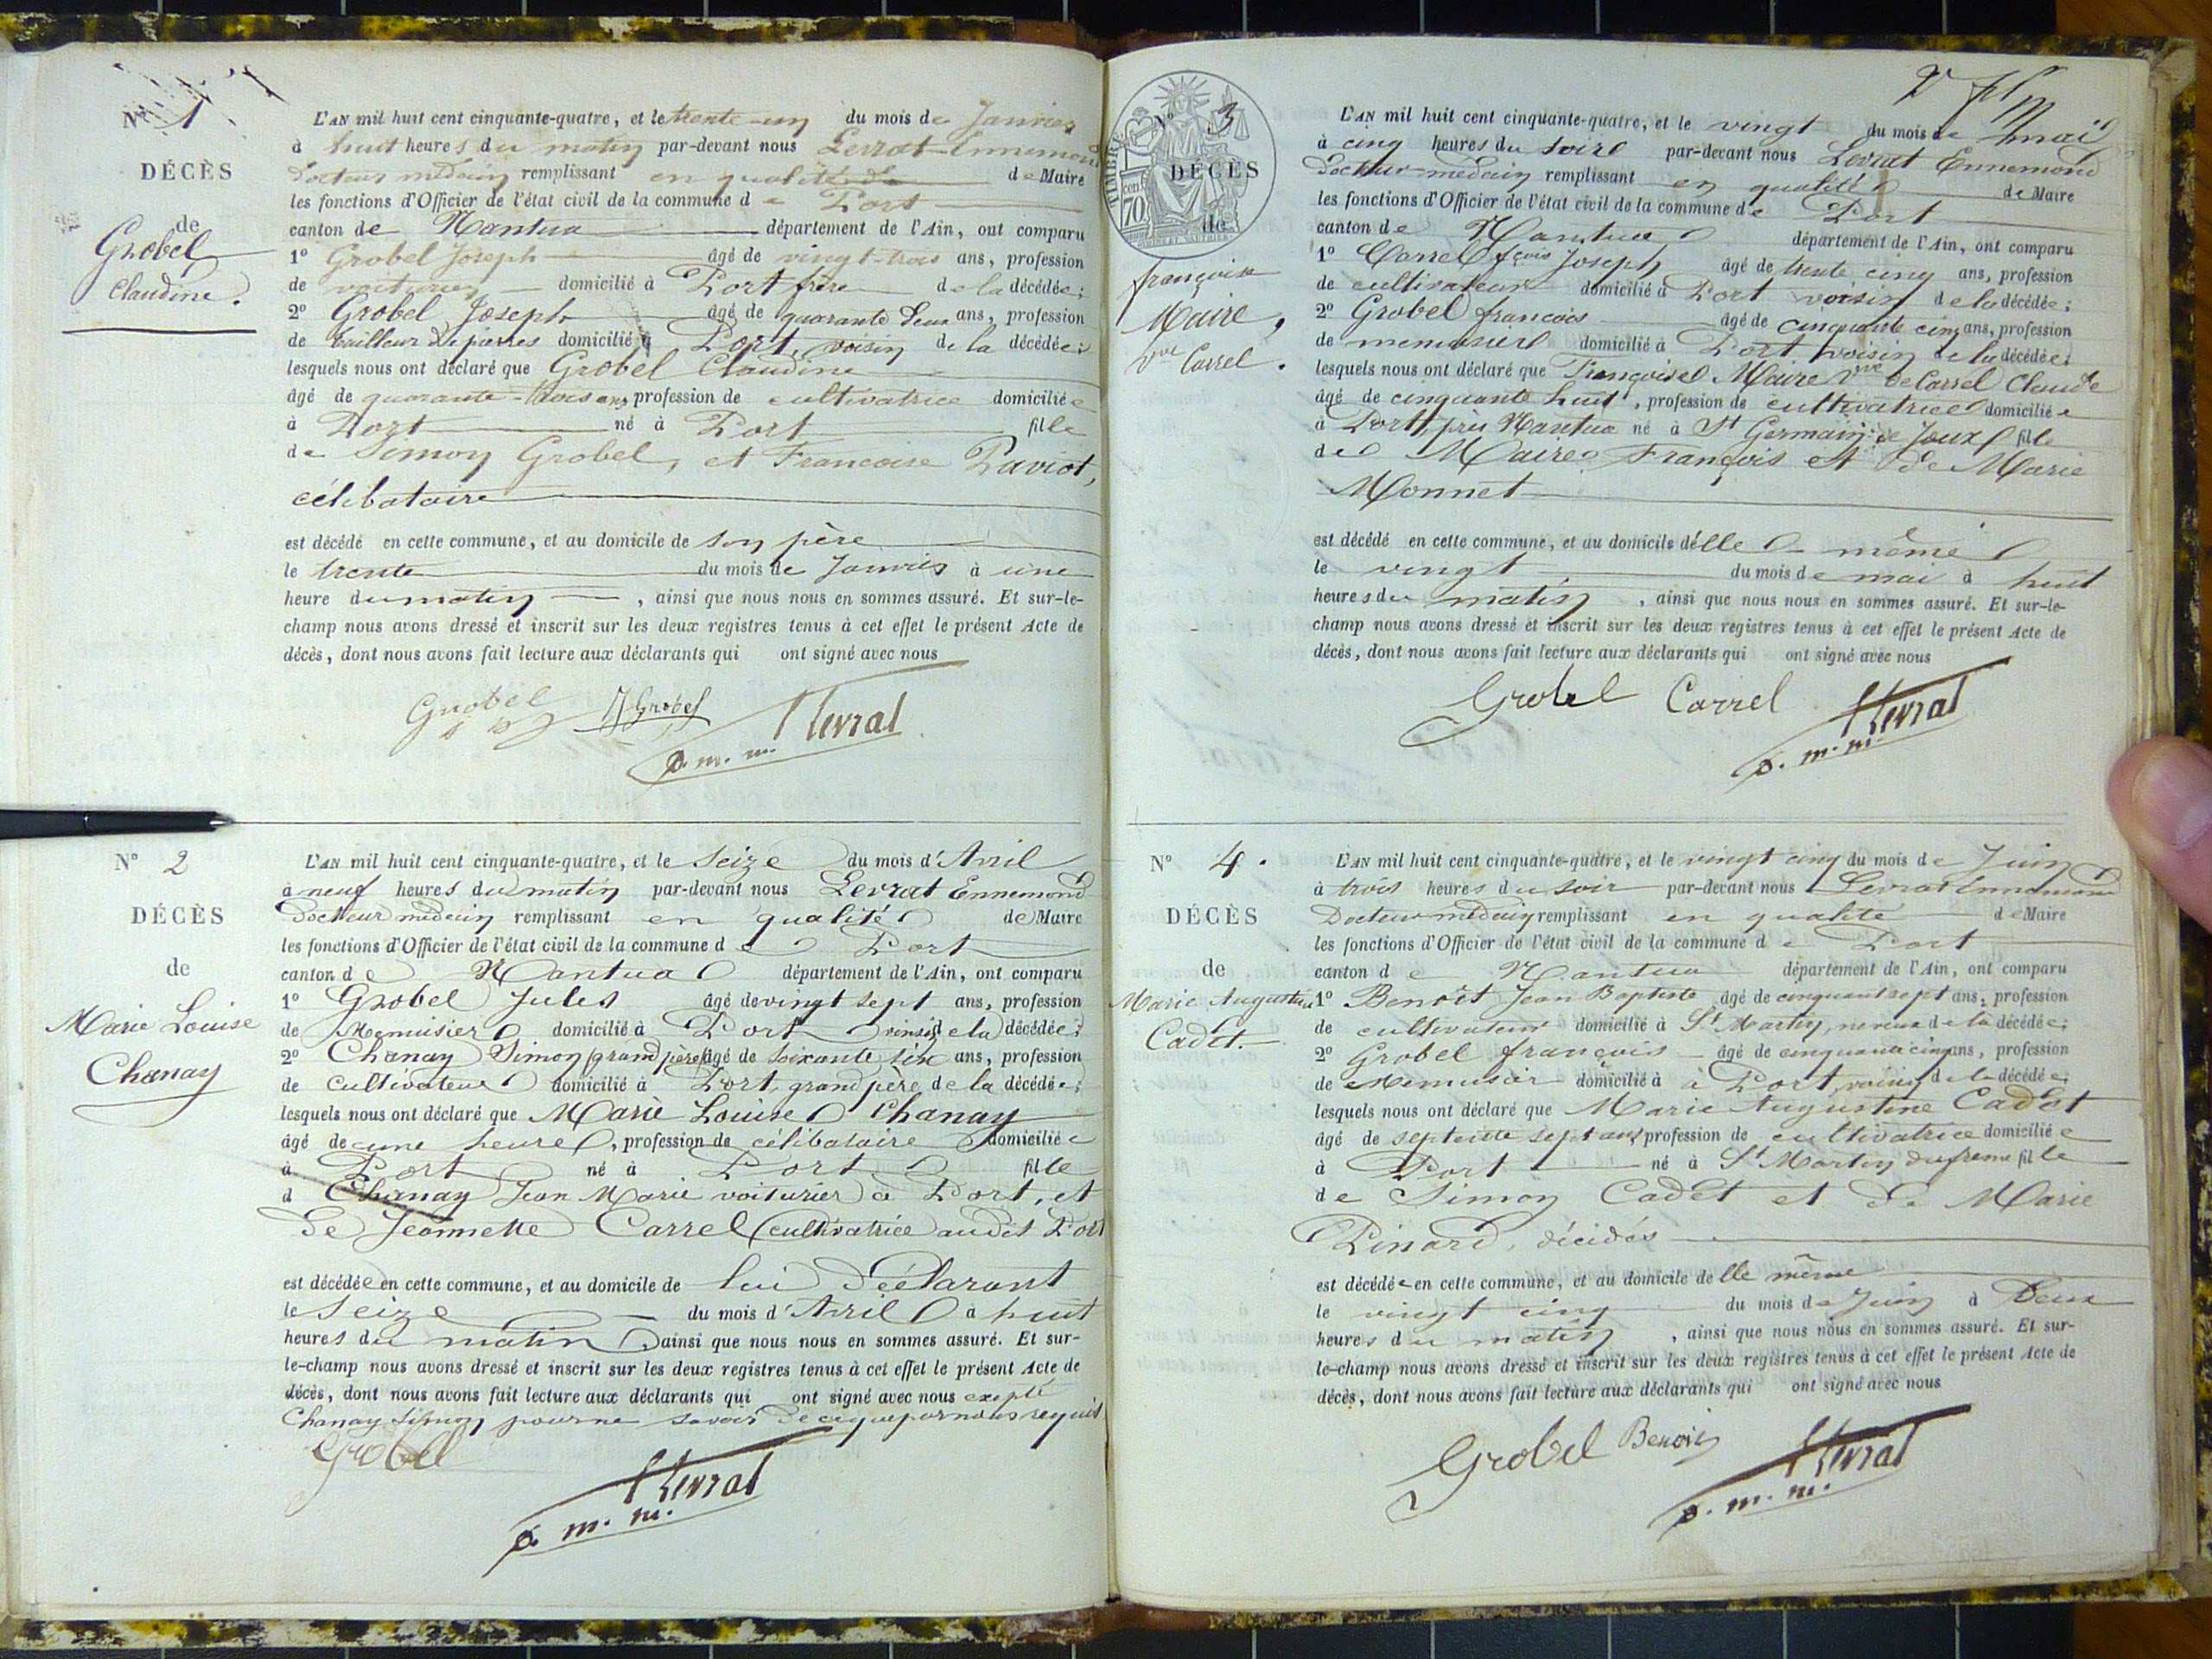 N° 1
DÉCÈS
de
Grobel
Claudine.
L'AN mil huit cent cinquante-quatre, et le trente-un du mois de Janvier
à huit heures du matin par-devant nous Levrat Ennemond
Docteur médecin remplissant en qualité de de Maire
les fonctions d'Officier de l'état civil de la commune de Port
canton de Nantua département de l'Ain, ont comparu
1° Grobel Joseph âgé de vingt-trois ans, profession
de voiturier domicilié à Port frère de la décédée;
2° Grobel Joseph âgé de quarante deux ans, profession
de tailleur de pierres domicilié à Port, voisin de la décédée;
lesquels nous ont déclaré que Grobel Claudine
âgé de quarante-trois ans profession de cultivatrice domiciliée
à Port né à Port fille
de Simon Grobel, et Francoise Paviot,
célibataire
est décédé en cette commune, et au domicile de son père
le trente du mois de Janvier à une
heure du matin , ainsi que nous nous en sommes assuré. Et sur-le-
champ nous avons dressé et inscrit sur les deux registres tenus à cet effet le présent Acte de
décès, dont nous avons fait lecture aux déclarants qui ont signé avec nous
Grobel J Grobel Levrat
d. m. m.
N° 2
DÉCÈS
de
Marie Louise
Chanay
L'AN mil huit cent cinquante-quatre, et le Seize du mois d'Avril
à neuf heures du matin par-devant nous Levrat Ennemond
Docteur médecin remplissant en qualité de Maire
les fonctions d'Officier de l'état civil de la commune de Port
canton de Nantua département de l'Ain, ont comparu
1° Grobel Jules âgé de vingt sept ans, profession
de Menuisier domicilié à Port voisin de la décédée;
2° Chanay Simon (grand père) âgé de soixante six ans, profession
de cultivateur domicilié à Port, grand père de la décédée;
lesquels nous ont déclaré que Marie Louise Chanay
âgé de une heure, profession de célibataire domiciliée
à Port né à Port fille
d Chanay Jean Marie voiturier à Port, et
de Jeannette Carrel (cultivatrice audit Port
est décédée en cette commune, et au domicile de lui Déclarant
le Seize du mois d'Avril à huit
heures du matin, ainsi que nous nous en sommes assuré. Et sur-
le-champ nous avons dressé et inscrit sur les deux registres tenus à cet effet le présent Acte de
décès, dont nous avons fait lecture aux déclarants qui ont signé avec nous excepté
Chanay Simon pour ne savoir de ce que par nous requis
Grobel
Levrat
d. m. m.
2e flt
N° 3
TIMBRE
70
DÉCÈS
de
françoise
Maire,
Vve Carrel.
L'AN mil huit cent cinquante-quatre, et le vingt du mois de mai
à cinq heures du soir par-devant nous Levrat Ennemond
Docteur-médecin remplissant en qualité de Maire
les fonctions d'Officier de l'état civil de la commune de Port
canton de Nantua département de l'Ain, ont comparu
1° Carrel fçois Joseph âgé de trente cinq ans, profession
de cultivateur domicilié à Port voisin de la décédée;
2° Grobel francois âgé de cinquante cinq ans, profession
de menuisier domicilié à Port voisin de la décédée;
lesquels nous ont déclaré que Françoise Maire Vve de Carrel Claude
âgé de cinquante huit, profession de cultivatrice domiciliée
à Port, près Nantua né à St Germain de Joux fille
de Maire François et de Marie
Monnet
est décédé en cette commune, et au domicile d'elle même
le vingt du mois de mai à huit
heures du matin , ainsi que nous nous en sommes assuré. Et sur-le-
champ nous avons dressé et inscrit sur les deux registres tenus à cet effet le présent Acte de
décès, dont nous avons fait lecture aux déclarants qui ont signé avec nous
Grobel Carrel Levrat
d. m. m.
N° 4.
DÉCÈS
de
Marie Augustine
Cadet.
L'AN mil huit cent cinquante-quatre, et le vingt cinq du mois de Juin
à trois heures du soir par-devant nous Levrat Ennemond
Docteur médecin remplissant en qualité de Maire
les fonctions d'Officier de l'état civil de la commune de Port
canton de Nantua département de l'Ain, ont comparu
1° Benoît Jean Baptiste âgé de cinquant sept ans, profession
de cultivateur domicilié à St Martin, neveu de la décédée;
2° Grobel françois âgé de cinquante cinq ans, profession
de Menuisier domicilié à à Port, voisin de la décédée;
lesquels nous ont déclaré que Marie Augustine Cadet
âgé de septente sept ans profession de cultivatrice domiciliée
à Port né à St Martin du frene fille
de Simon Cadet et de Marie
Pinard, décédés
est décédée en cette commune, et au domicile delle même
le vingt cinq du mois de Juin à Deux
heures du matin , ainsi que nous nous en sommes assuré. Et sur-
le-champ nous avons dressé et inscrit sur les deux registres tenus à cet effet le présent Acte de
décès, dont nous avons fait lecture aux déclarants qui ont signé avec nous
Grobel Benoit Levrat
d. m. m.